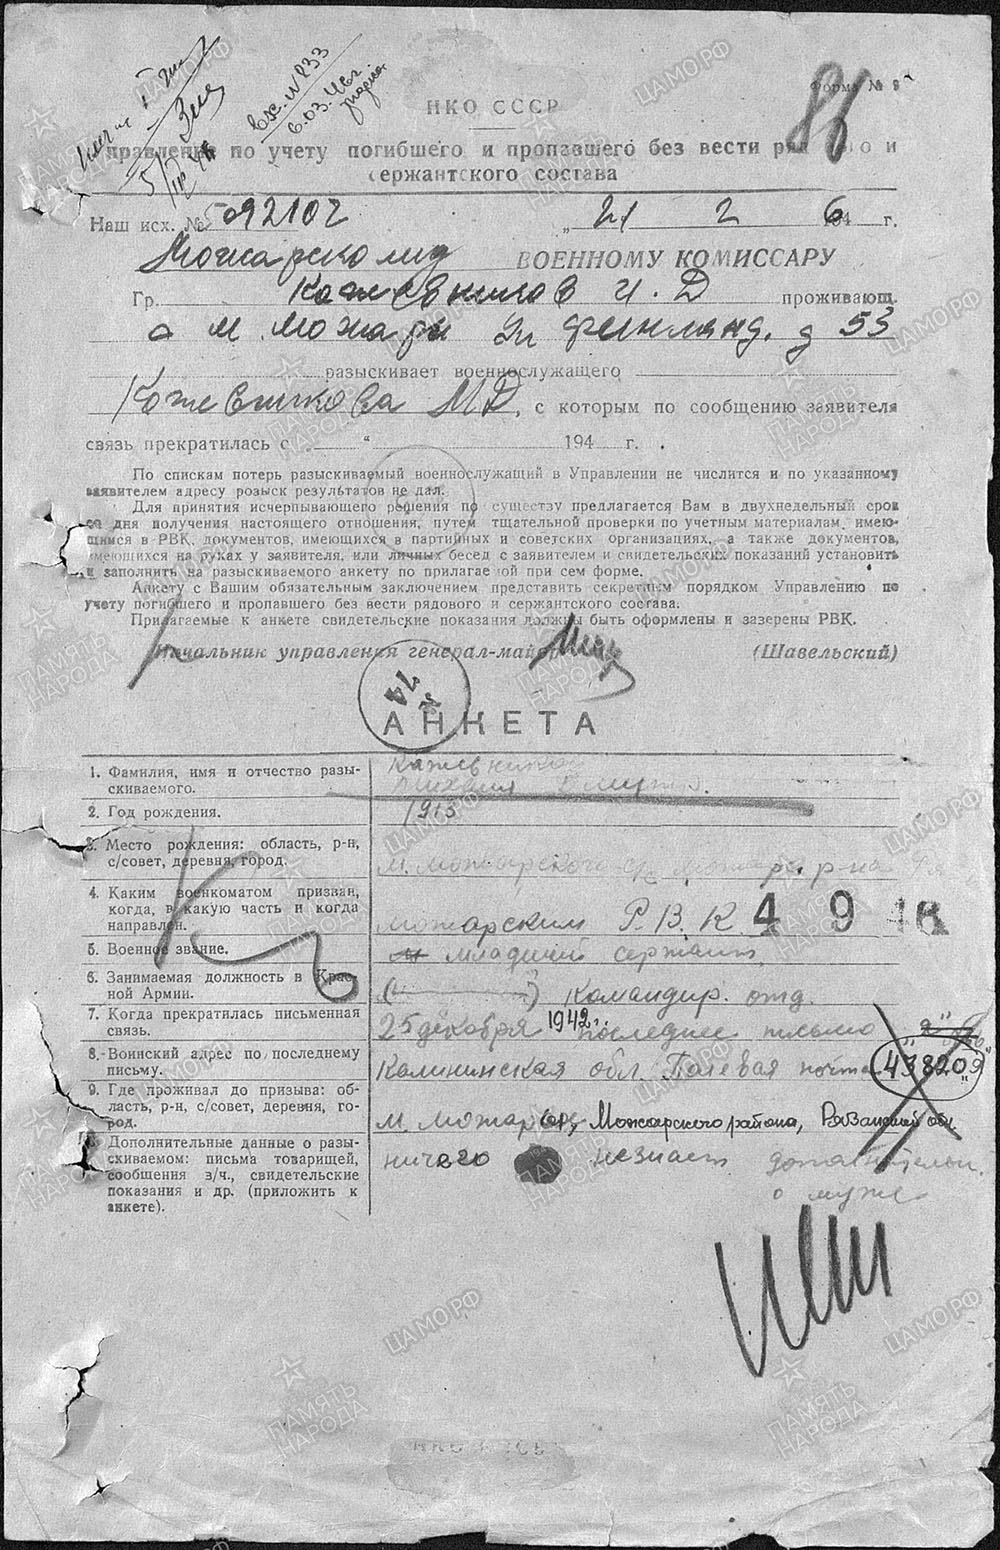 Форма № 9
вх. № 833
6.03.46г
86
НКО СССР
Управление по учету погибшего и пропавшего без вести рядового и
сержантского состава
Наш исх. № 5092102 „21 2 1946 г.
Можарскому ВОЕННОМУ КОМИССАРУ
Гр. Кожевников И. Д проживающ.
м. Можары Ул Финлянд. д 53
разыскивает военнослужащего
Кожевникова М Д, с которым по сообщению заявителя
связь прекратилась с „ 194 г.
По спискам потерь разыскиваемый военнослужащий в Управлении не числится и по указанному
заявителем адресу розыск результатов не дал.
Для принятия исчерпывающего решения по существу предлагается Вам в двухнедельный срок
со дня получения настоящего отношения, путем тщательной проверки по учетным материалам, имею-
щимся в РВК, документов, имеющихся в партийных и советских организациях, а также документов,
имеющихся на руках у заявителя, или личных бесед с заявителем и свидетельских показаний установить
и заполнить на разыскиваемого анкету по прилагаемой при сем форме.
Анкету с Вашим обязательным заключением представить секретным порядком Управлению по
учету погибшего и пропавшего без вести рядового и сержантского состава.
Прилагаемые к анкете свидетельские показания должны быть оформлены и заверены РВК.
Начальник управления генерал-майор (Шавельский)
АНКЕТА
1. Фамилия, имя и отчество разы-
скиваемого.
Кажевников
Михаил
2. Год рождения.
1913
3. Место рождения: область, р-н,
с/совет, деревня, город.
м. можарского р-на
4. Каким военкоматом призван,
когда, в какую часть и когда
направлен.
можарским Р.В.К. 4 9
5. Военное звание.
младший сержант
6. Занимаемая должность в Крас-
ной Армии.
командир. отд.
7. Когда прекратилась письменная
связь.
25 декабря 1942г. последнее письмо
8. Воинский адрес по последнему
письму.
Калининская обл. Полевая почта 438209
9. Где проживал до призыва: об-
ласть, р-н, с/совет, деревня, го-
род.
м. можары, Можарского района, Рязанской обл.
10. Дополнительные данные о разы-
скиваемом: письма товарищей,
сообщения в/ч., свидетельские
показания и др. (приложить к
анкете).
ничего незнает
о муже
ЦАМО.РФ
ПАМЯТЬ НАРОДА